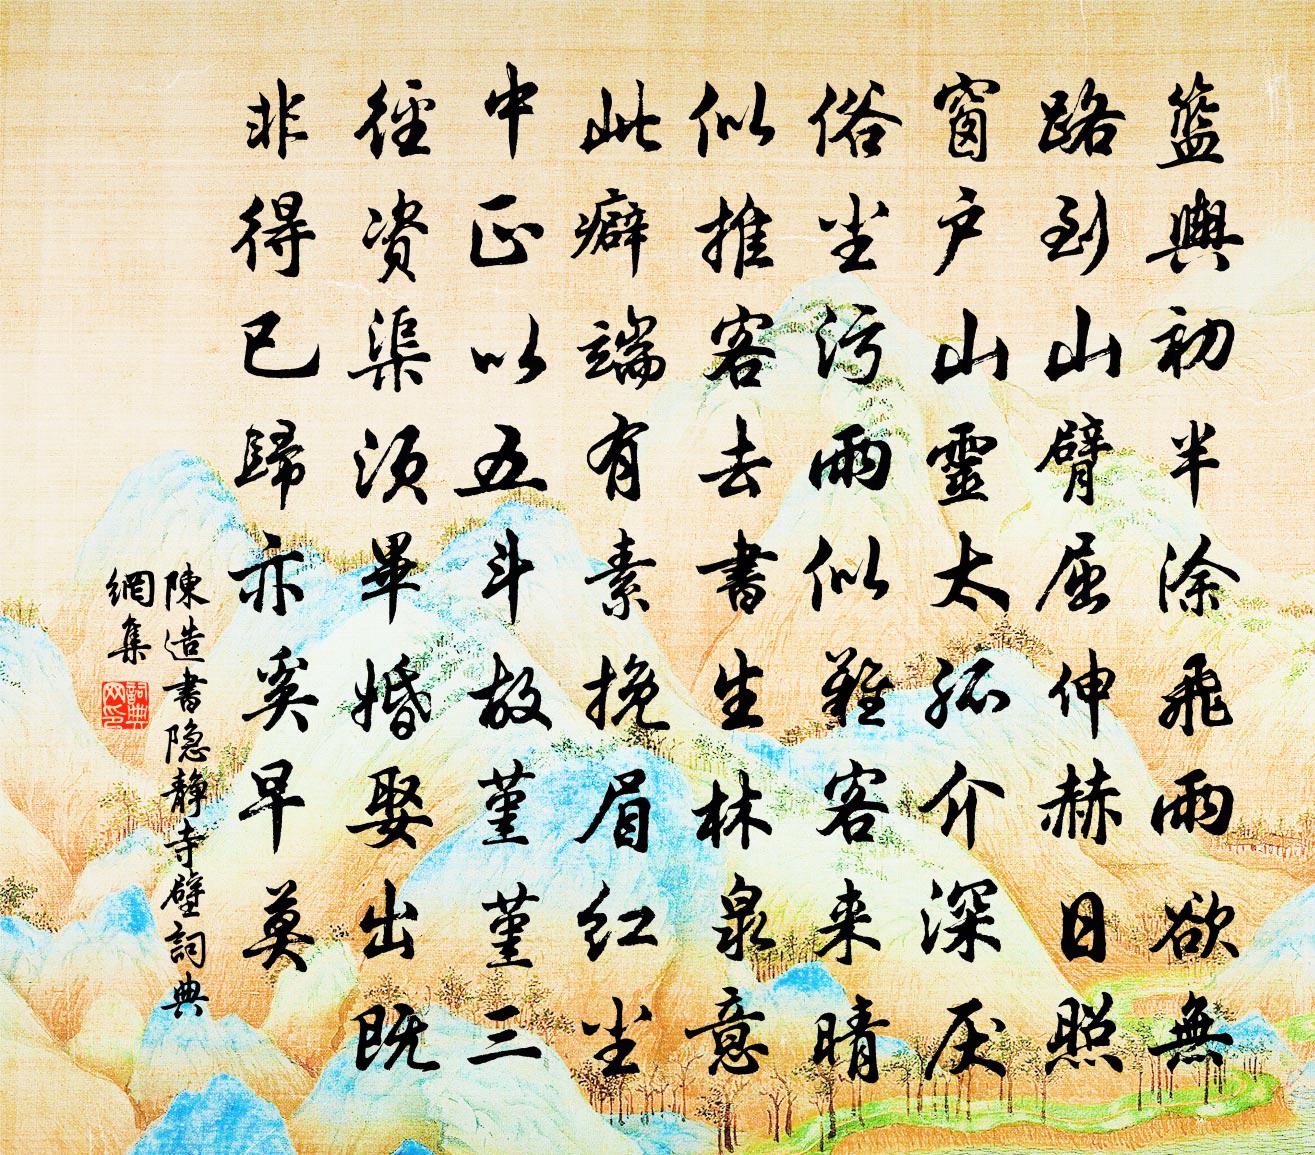 籃輿初半涂飛雨欲無
路到山臂屈伸赫日照
窗户山靈太孤介深厌
俗尘污雨似難客来晴
似推客去書生林泉意
此癖端有素挽眉紅尘
中正以五斗故堇堇三
徑资渠須畢婚娶出既
非得已歸亦奚早莫
陳造書隐静寺壁詞典
網集
詞典